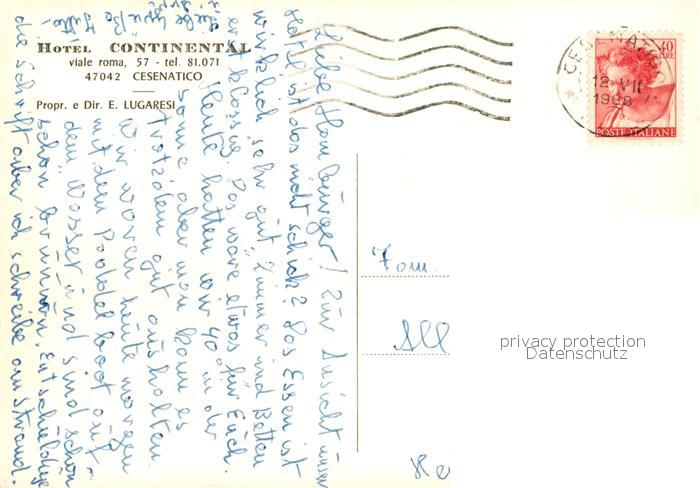 HOTEL CONTINENTAL
viale roma, 57 - tel. 81.071
47042 CESENATICO
Propr. e Dir. E. LUGARESI
Liebe Hamburger! Zur Ansicht unser
Hotel ist das nicht schick? Das Essen ist
wirklich sehr gut Zimmer und Betten
erstklassig. Das wäre etwas für Euch.
Heute hatten wir 40° in der
Sonne aber man kann es
trotzdem gut aushalten.
Wir waren heute morgen
mit dem Paddelboot auf
dem Wasser und sind schön
schon braun. Entschuldige
die Schrift aber ich schreibe am Strand.
Liebe Grüße
40
LIRE
12 VII
POSTE ITALIANE
Fam.
All
privacy protection
Datenschutz